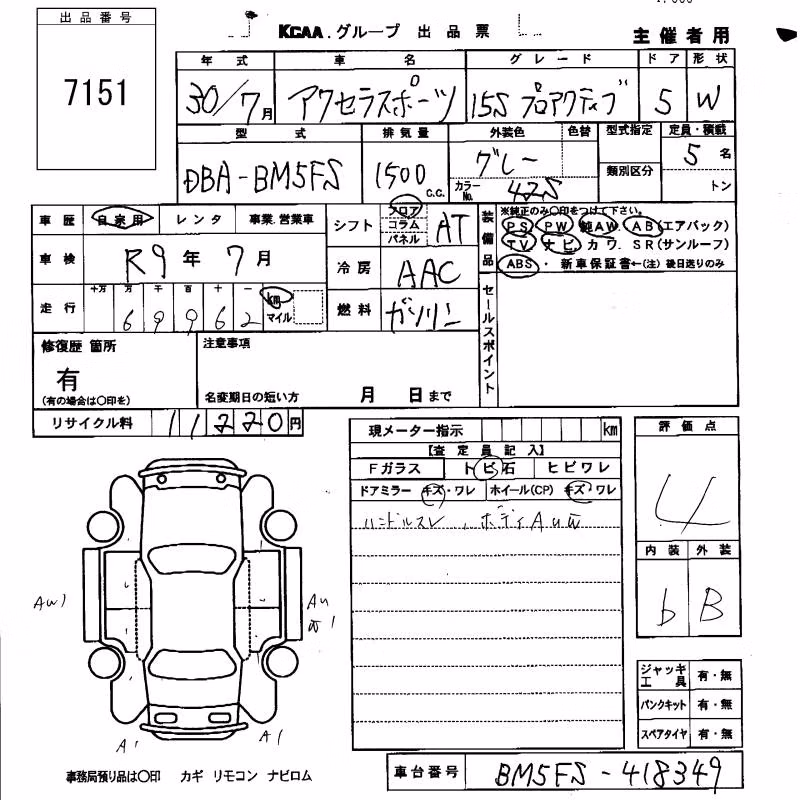 出品番号
7151
KCAA.グループ 出品票
主催者用
年式 車名 グレード ドア 形状
30/7月 アクセラスポーツ 15S プロアクティブ 5 W
型式 排気量 外装色 色替 型式指定 定員・積載
DBA-BM5FS 1500 C.C. グレー 5名
カラーNo. 42S 類別区分 トン
車歴 自家用 レンタ 事業.営業車
シフト フロア コラム パネル AT
装備品 ※純正のみ〇印をつけて下さい。
PS PW 純AW. AB(エアバック)
TV ナビ カワ. SR(サンルーフ)
ABS・ 新車保証書←(注) 後日送りのみ
車検 R9年7月
冷房 AAC
走行 十万 万 千 百 十 一 km マイル
69962
燃料 ガソリン
セールスポイント
修復歴 箇所
有
(有の場合は〇印を)
注意事項
名変期日の短い方 月 日まで
リサイクル料 11220円
現メーター指示 km
【査定員記入】
Fガラス トビ石 ヒビワレ
ドアミラー キズ・ワレ ホイール(CP) キズ・ワレ
ハンドルスレ、ボディAu
評価点
4
内装 外装
b B
AW1
Au
1
A1 A1
ジャッキ工具 有・無
パンクキット 有・無
スペアタイヤ 有・無
事務局預り品は〇印 カギ リモコン ナビロム
車台番号 BM5FS-418349